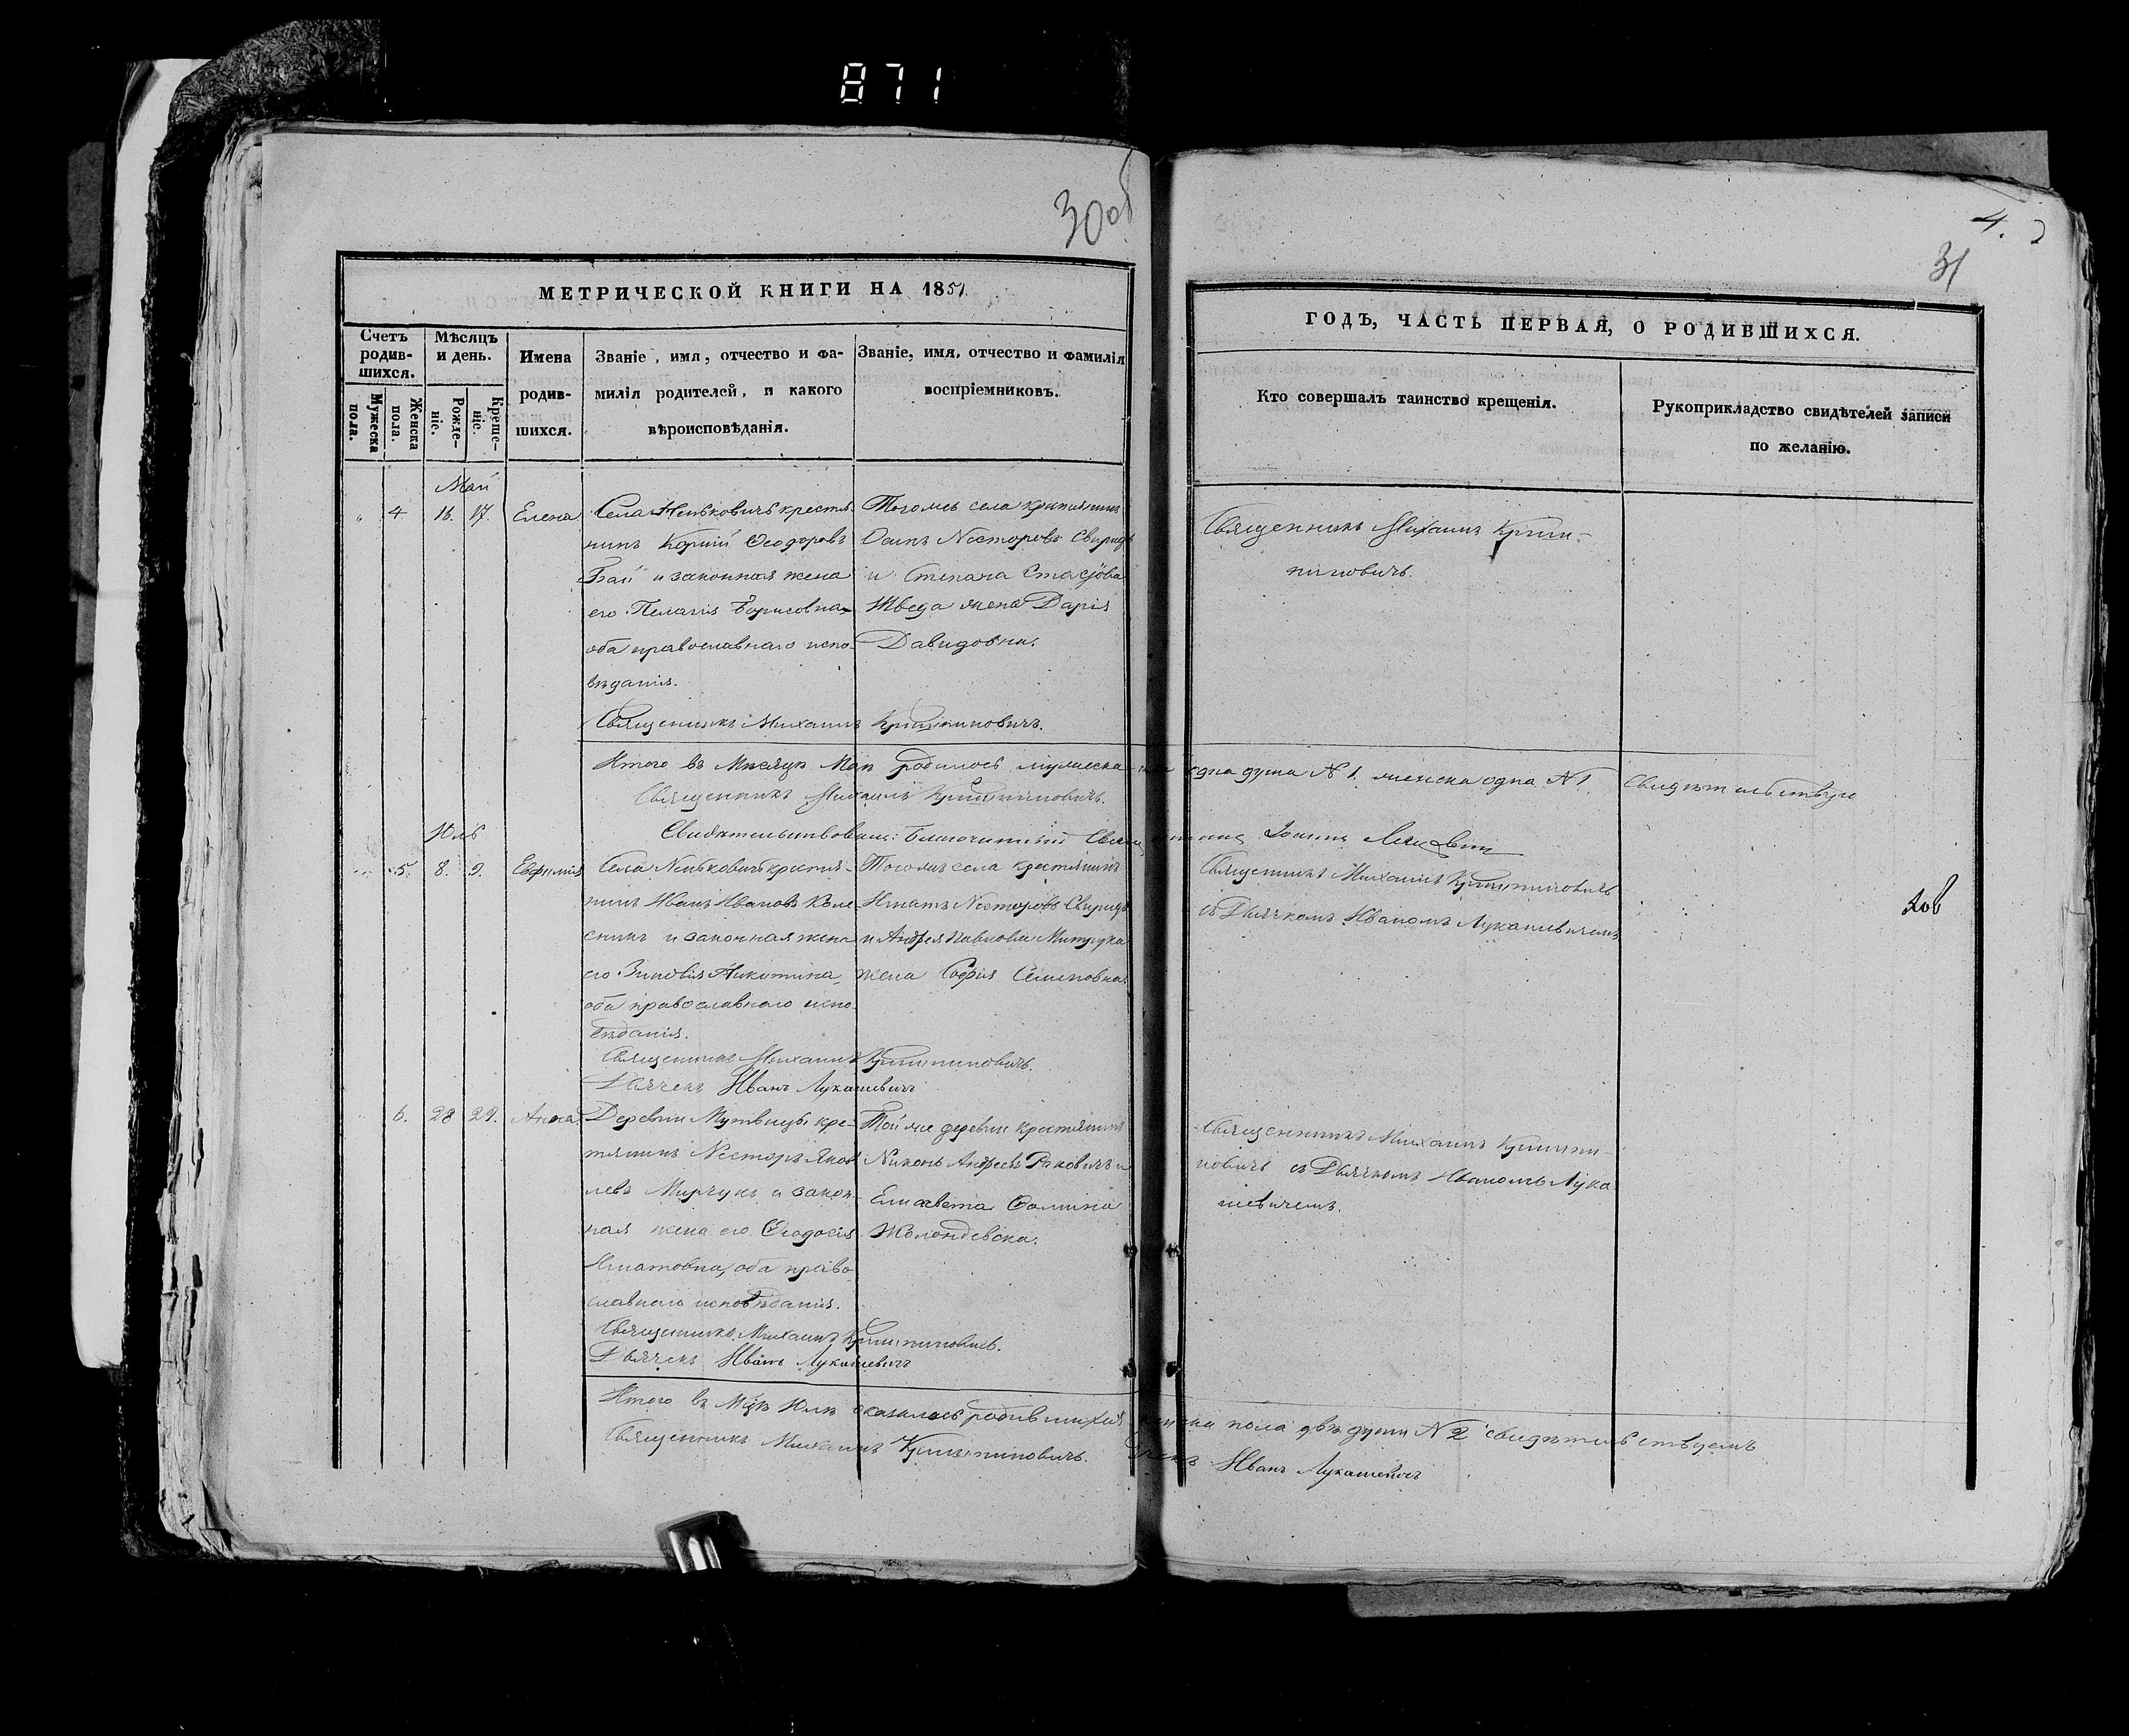 871
30об
4.
31
МЕТРИЧЕСКОЙ КНИГИ НА 1851.
ГОДЪ, ЧАСТЬ ПЕРВАЯ, О РОДИВШИХСЯ.
Счетъ родив-шихся.
Мужеска пола.
Женска пола.
Мѣсяцъ и день.
Рожде-ніе.
Креще-ніе.
Имена родив-шихся.
Званіе, имя, отчество и фа-
милія родителей, и какого
вѣроисповѣданія.
Званіе, имя, отчество и фамилія
воспріемниковъ.
Кто совершалъ таинство крещенія.
Рукоприкладство свидѣтелей записи
по желанію.
Май
4 16. 17. Елена
Села Неньковичь крестья
нинъ Корній Ѳеодоровъ
Бай и законная жена
его Пелагія Борисовна
оба православнаго испо-
вѣданія.
Священникъ Михаилъ
Тогожъ села крестьянинъ
Несторовъ Свиридъ
и Степана
Шведа жена Дарія
Давидовна.
Священникъ Михаилъ
Итого въ Мѣсяцѣ Маѣ родилось мужеска одна душа N 1. женска одна N 1. Свидѣтельствую
Священникъ Михаилъ
Свидѣтельствовалъ: Благочинный Іоаннъ
Юль
5. 8. 9. Евфимія
Села Неньковичь крестья-
нинъ Иванъ Ивановъ Коле
сникъ и законная жена
его Зиновія Никитина
оба православнаго испо-
вѣданія.
Священникъ Михаилъ
Дьячекъ Иванъ Лукашевичъ
Тогожъ села крестьянинъ
Игнатъ Несторовъ Свиридъ
и Андрея Павлова
жена Софія Семеновна.
Священникъ Михаилъ
съ Дьячкомъ Иваномъ Лукашевичемъ
6. 28 29. Анна.
Деревни Мутвицы кре-
стьянинъ Несторъ Яков
левъ и закон-
ная жена его Ѳеодосія
Игнатовна, оба право
славнаго исповѣданія.
Священникъ Михаилъ
Дьячекъ Иванъ Лукашевичъ
Той же деревни крестьянинъ
Никонъ Андреевъ Раковичъ и
Елисавета Ѳомина
Священникъ Михаилъ
съ Дьячкомъ Иваномъ Лука
шевичемъ.
Итого въ Мцѣ Юлѣ оказалось родившихся женска пола двѣ души N 2 свидѣтельствуемъ
Священникъ Михаилъ
Дьячекъ Иванъ Лукашевичъ